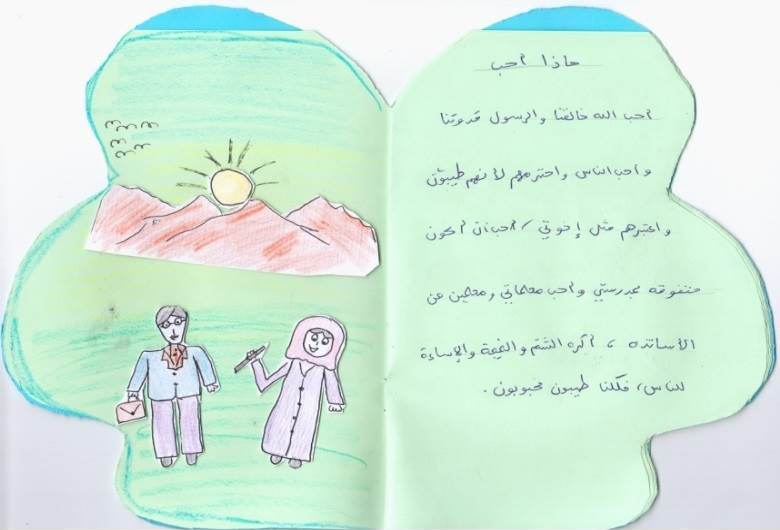 ماذا أحب
أحب الله خالقنا والرسول قدوتنا
وأحب الناس واحترمهم لأنهم طيبون
واعتبرهم مثل إخوتي، أحب أن أكون
متفوقه بمدرستي وأحب معلماتي ومعلمين من
الأساتذه، أكره الشتم والغيبة والإساءة
للناس، فكلنا طيبون محبوبون.